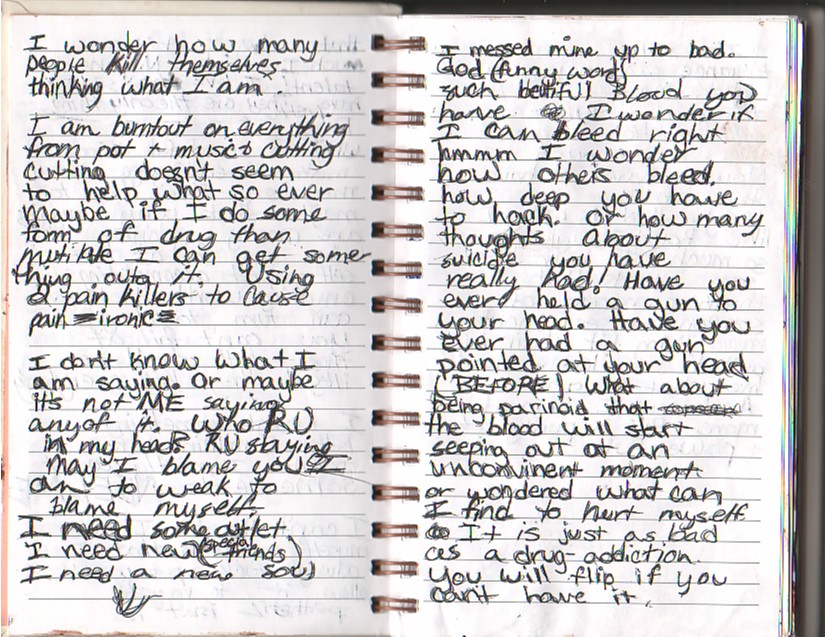 I wonder how many
people kill themselves
thinking what I am.
I am burntout on everything
from pot + music + cutting
cutting doesn't seem
to help what so ever
maybe if I do some
form of drug than
mutilate I can get some
thing outa it. Using
pain killers to cause
pain ironic
I don't know what I
am saying. Or maybe
its not ME saying
any of it. Who RU
in my head? RU staying
may I blame you? I
am to weak to
blame myself.
I need some outlet
I need new (special friends)
I need a new soul
I messed mine up to bad.
God (funny word)
such beutiful Blood you
have I wonder if
I can bleed right
hmmm I wonder
how others bleed.
how deep you have
to hack. Or how many
thoughts about
suicide you have
really had! Have you
ever held a gun to
your head. Have you
ever had a gun
pointed at your head
(BEFORE). What about
being parinoid that
the blood will start
seeping out at an
unconvinent moment
or wondered what can
I find to hurt myself
It is just as bad
as a drug addiction.
You will flip if you
can't have it.